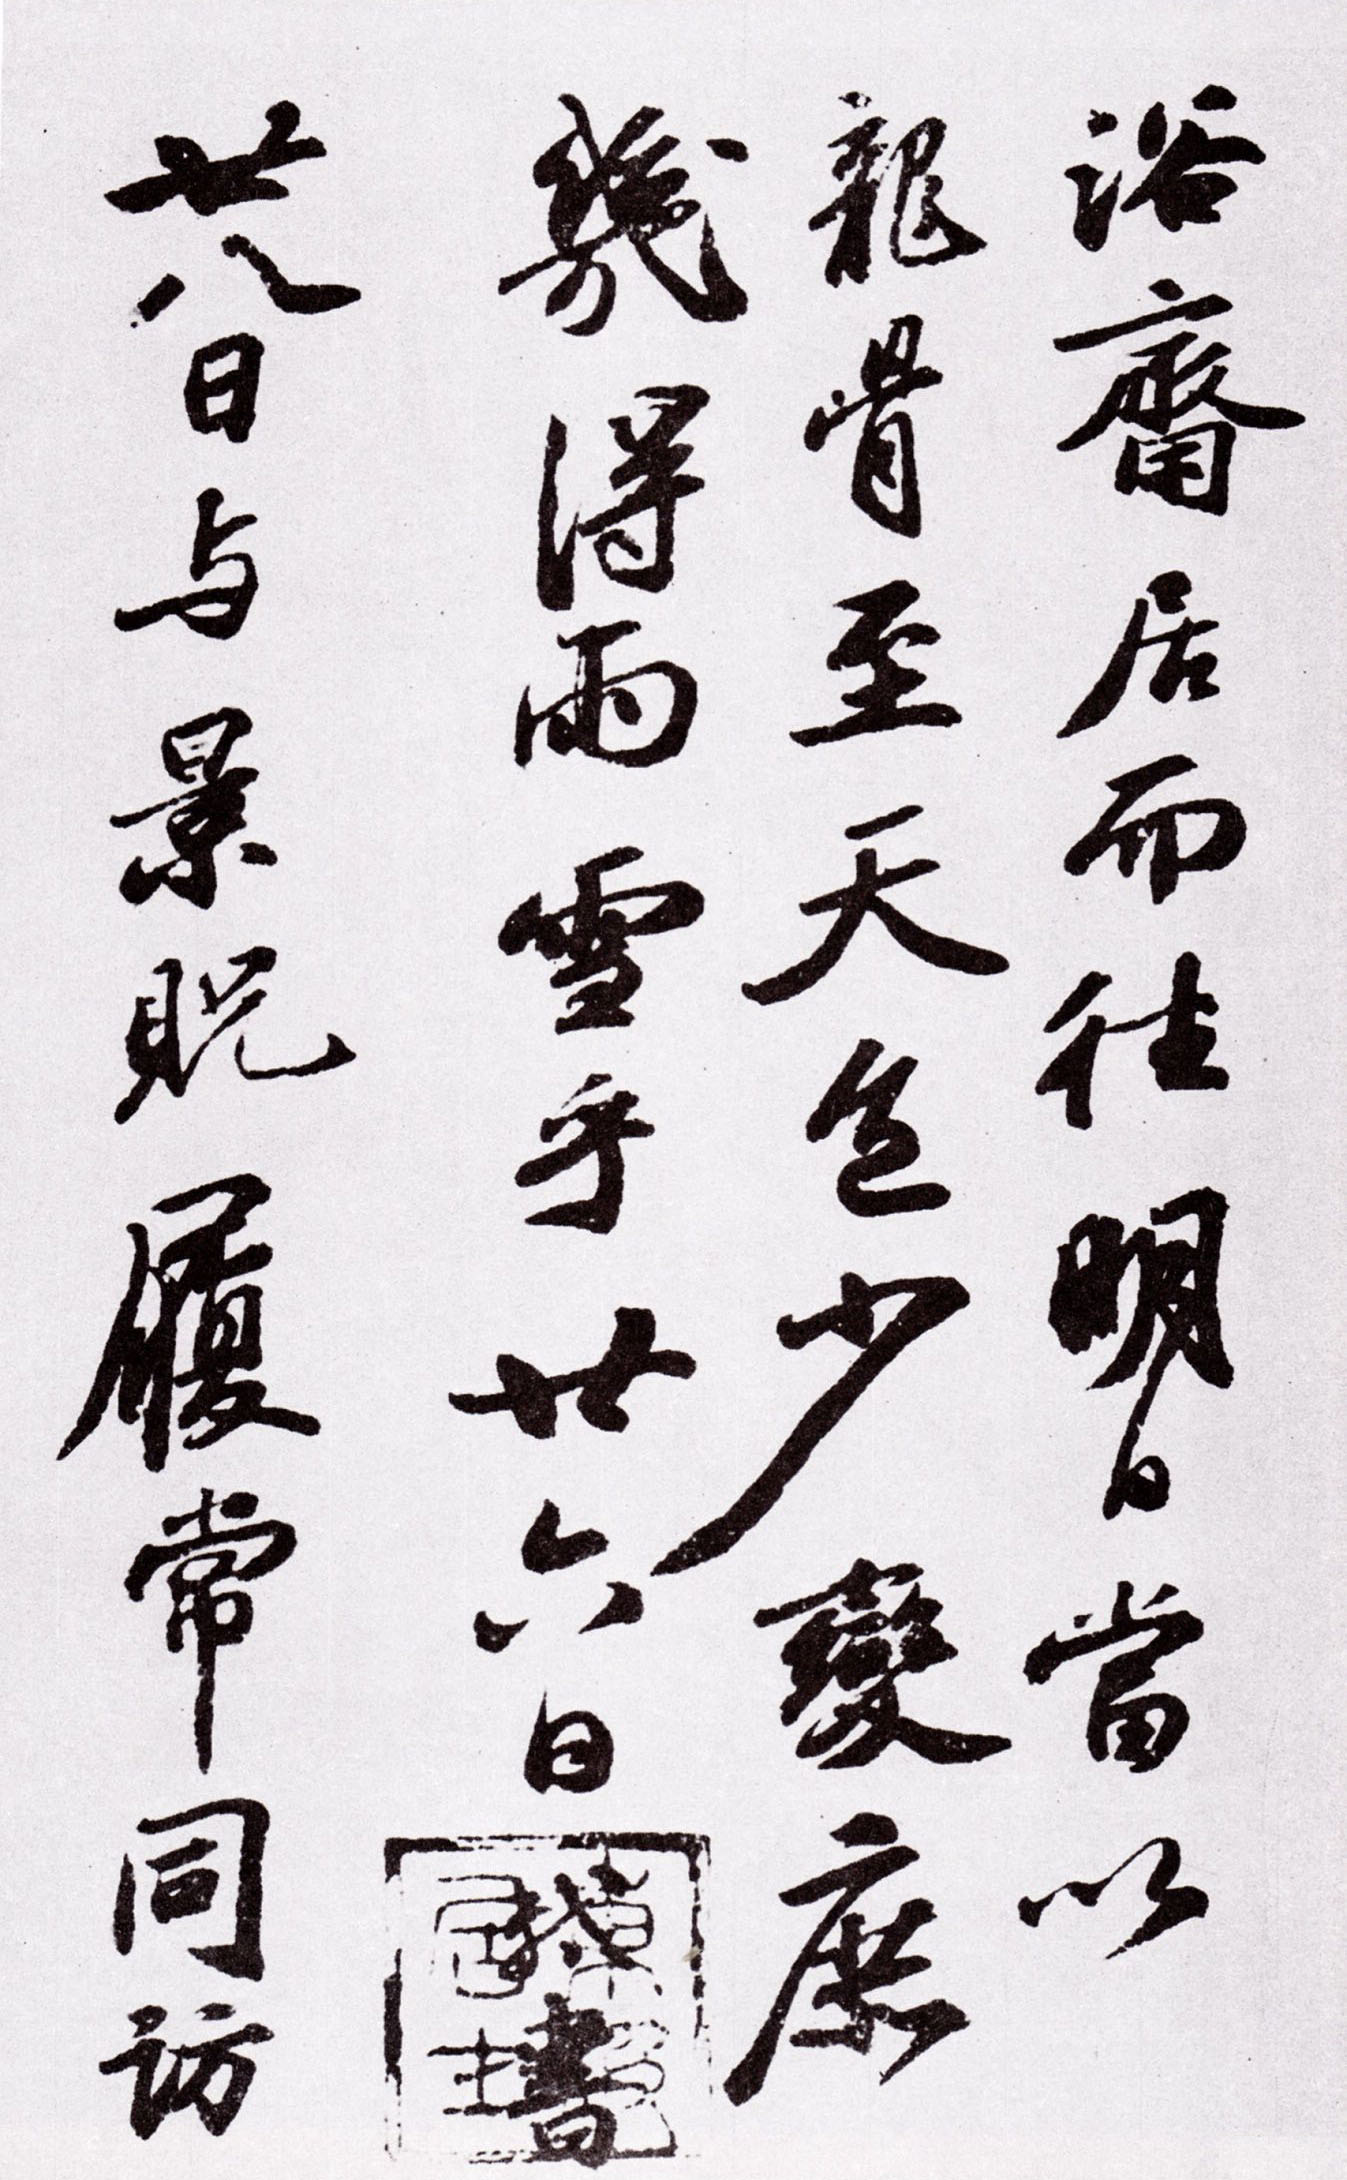 浴齋居而往明日當以
龍骨至天色少變庶
幾得雨雪乎廿六日軾書
廿八日与景貺履常同訪